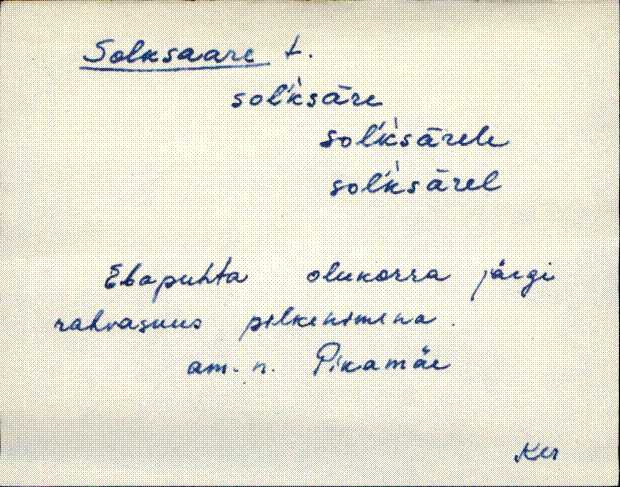 Solksaare t.
sol'k̀sāre
sol'k̀sārele
sol'k̀sārel
Ebapuhta olukorra järgi
rahvasuus pilkenimena.
am. n. Pikamäe
KLR